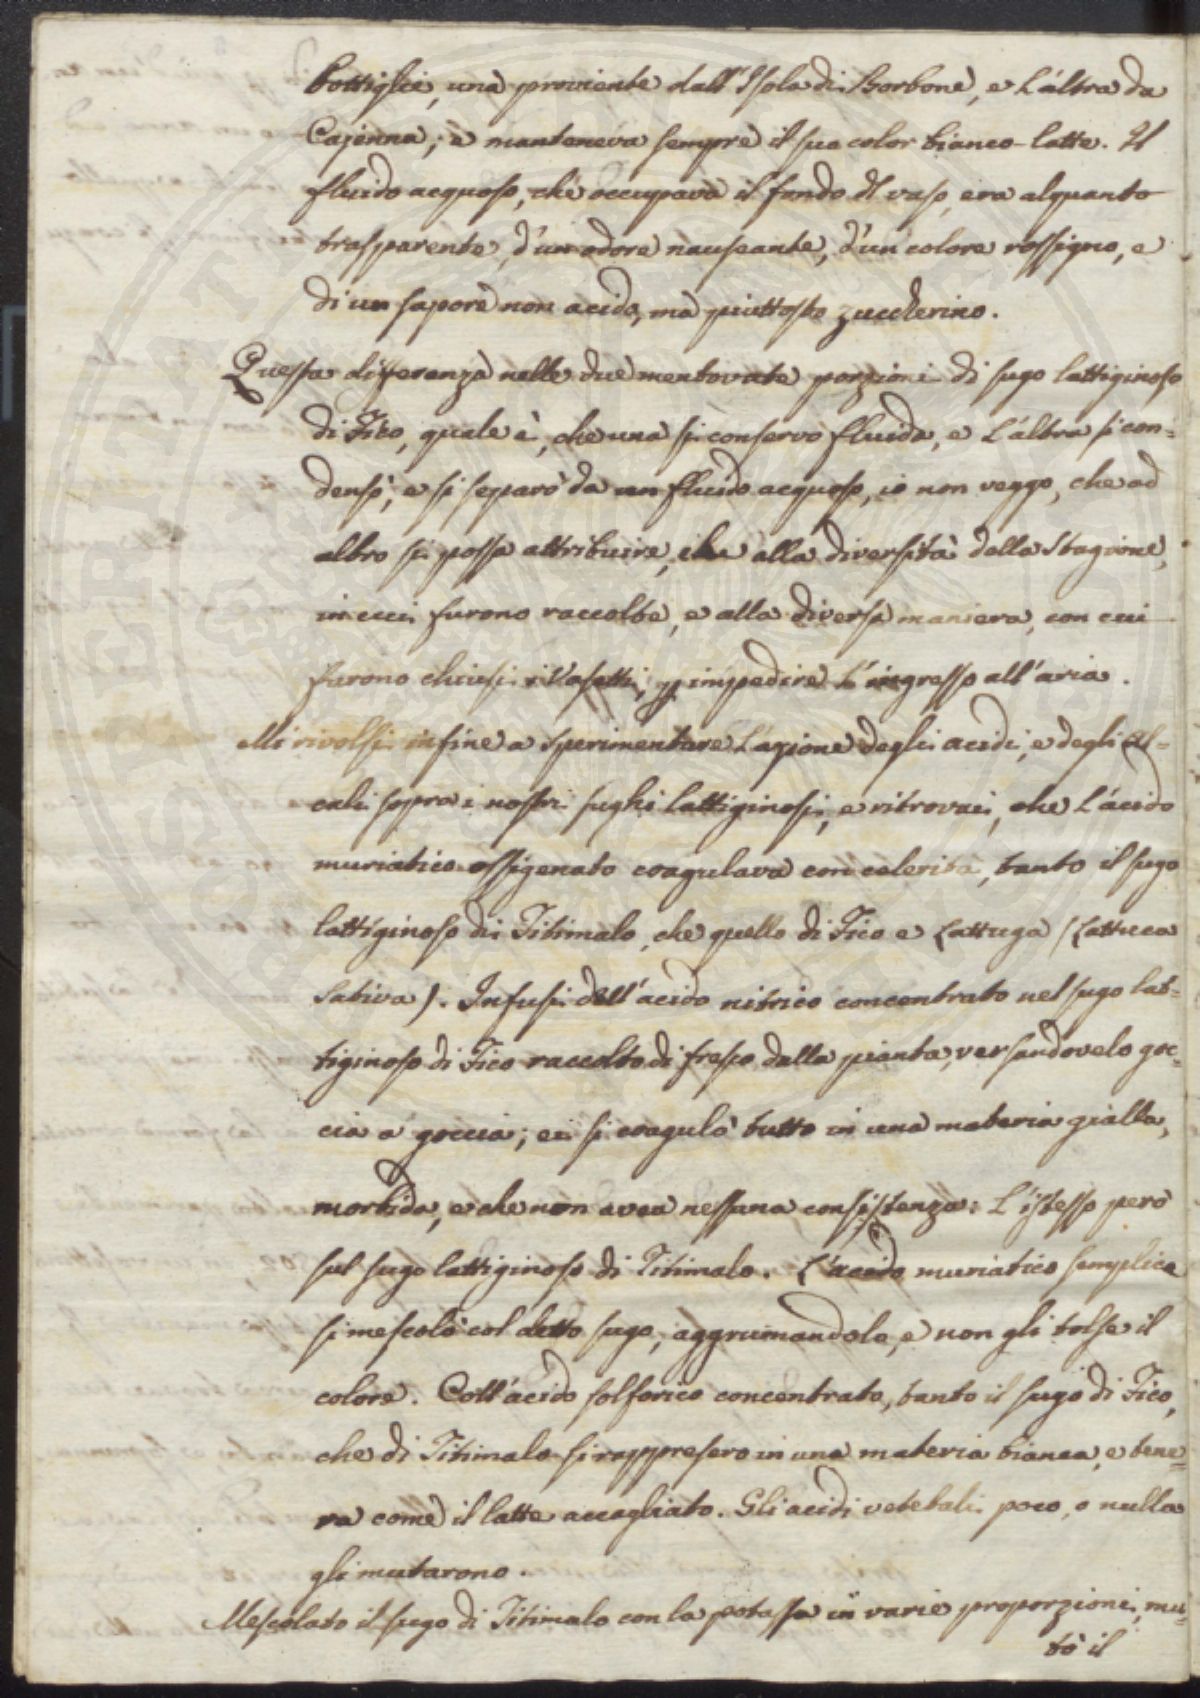 bottiglie, una proviente dall'Isola di Borbone, e l'altra da
Cajenna; e manteneva sempre il suo color bianco-latte. Il
fluido acquoso, che occupava il fondo del vaso, era alquanto
trasparente, d'un odore nauseante, d'un colore rossigno, e
di un sapore non acido, ma piuttosto zuccherino.
Questa differenza nelle due mentovate porzioni di sugo lattiginoso
di Fico, quale è, che una si conservo fluida, e l'altra si con=
densò, e si separò da un fluido acquoso, io non veggo, che ad
altro si possa attribuire, che alla diversità della Stagione,
in cui furono raccolte, e alla diversa maniera, con cui
furono chiusi i Vasetti, p impedire l'ingresso all'aria.
Mi rivolsi infine a sperimentare l'azione degli acidi, e degli al=
cali sopra i nostri sughi lattiginosi, e ritrovai, che l'acido
muriatico ossigenato coagulava con celerità, tanto il sugo
lattiginoso di Titimalo, che quello di Fico e Lattuga (Lattuca
Sativa). Infusi dell'acido nitrico concentrato nel sugo lat=
tiginoso di Fico raccolto di fresco dalla pianta, versandovelo goc=
cia a goccia; ei si coagulò tutto in una materia gialla,
morbida, e che non avea nessuna consistenza: L'istesso però
sul sugo lattiginoso di Titimalo. L'acido muriatico semplice
si mescolò col detto sugo, aggrumandolo, e non gli tolse il
colore. Coll'acido solforico concentrato, tanto il sugo di Fico,
che di Titimalo si rappresero in una materia bianca, e tene=
ra come il latte accagliato. Gli acidi vetetali poco, o nulla
gli mutarono.
Mescolato il sugo di Titimalo con la potassa in varie proporzioni, mu=
tò il